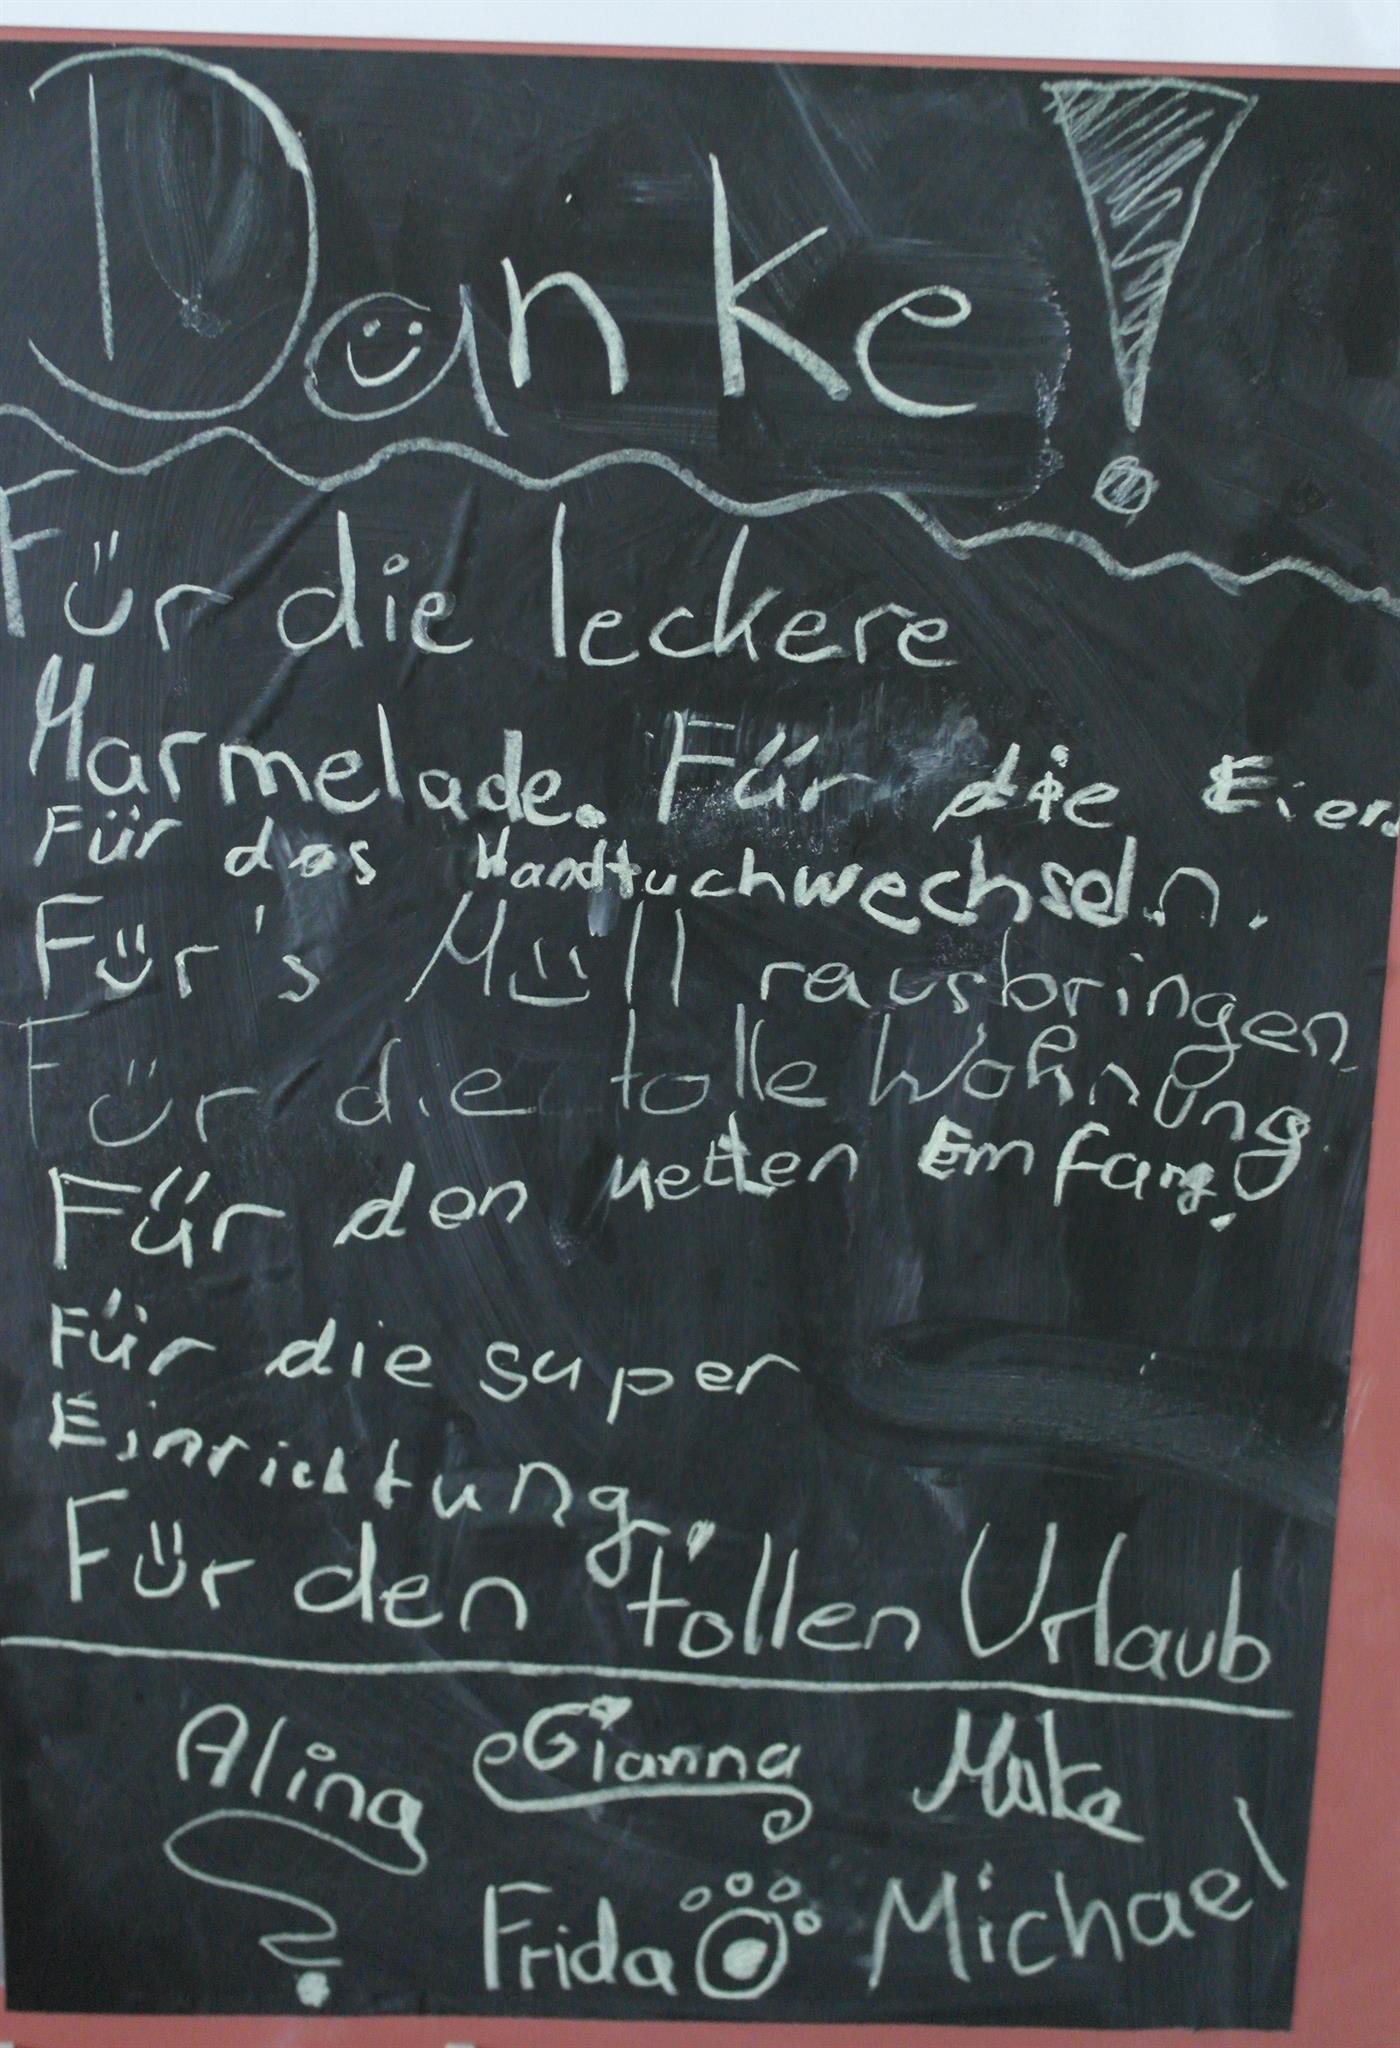 Danke!
Für die leckere
Marmelade. Für die Eier.
Für das Handtuchwechseln.
Für's Müll rausbringen
Für die tolle Wohnung
Für den netten Emfang.
Für die super
Einrichtung.
Für den tollen Urlaub
Alina Gianna
Frida Michael